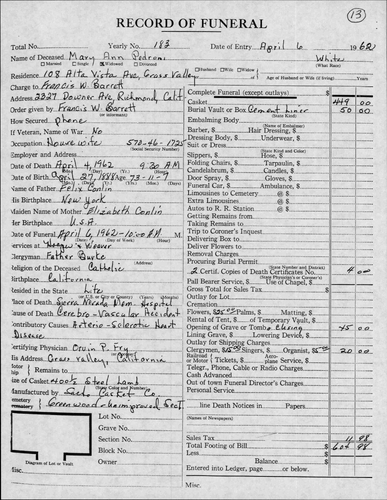 RECORD OF FUNERAL
13
Total No. Yearly No. 183 Date of Entry April 6 1962
Name of Deceased Mary Ann Pedroni White
Married Single Widowed Divorced Husband Wife Widow (What Race)
Residence 108 Alta Vista Ave, Grass Valley Age of Husband or Wife (if living) Years
Charge to Francis W. Barrett
Address 2327 Downer Ave Richmond, Calif
Order given by Francis W Barrett
How Secured phone
If Veteran, Name of War No
Occupation Housewife 570-46-1725
(Social Security Number)
Employer and Address
Date of Death April 4, 1962 9:30 A.M.
Date of Birth April 27, 1888 Age 73-11-7
Name of Father Felix Conlin
His Birthplace New York
Maiden Name of Mother Elizabeth Conlin
Her Birthplace U.S.A.
Date of Funeral April 6, 1962-10:00 AM M.
Services at Hooper & Weaver
Clergyman Father Burke
Religion of the Deceased Catholic
Birthplace California
Resident in the State Life
Place of Death Sierra Nevada Mem. Hospital
Cause of Death Cerebro-Vascular Accident
Contributory Causes Arterio-Sclerotic Heart
Disease
Certifying Physician Ervin P. Fry
His Address Grass Valley, California
Size of Casket
Manufactured by Sacto Casket Co.
Cemetery Greenwood
Diagram of Lot or Vault
Lot No.
Grave No.
Section No.
Block No.
Owner
Complete Funeral (except outlays) $
Casket 449 00
Burial Vault or Box Cement Liner 50 00
(State Kind)
Embalming Body
Barber, $ Hair Dressing, $
Dressing Body, $ Underwear, $
Suit or Dress
(State Kind and Color)
Slippers, $ Hose, $
Folding Chairs, $ Tarpaulin, $
Candelabrum, $ Candles, $
Door Spray, $ Gloves, $
Funeral Car, $ Ambulance, $
Limousines to Cemetery @ $
Extra Limousines @ $
Autos to R. R. Station @ $
Getting Remains from
Taking Remains to
Trip to Coroner's Request
Delivering Box to
Deliver Flowers to
Removal Charges
Procuring Burial Permit
2 Certif. Copies of Death Certificates No. 4 00
Pall Bearer Service, $ Use of Chapel, $
Gross Total for Sales Tax $
Outlay for Lot
Cremation
Flowers, $ Palms, $ Matting, $
Rental of Tent, $ of Temporary Vault, $
Opening of Grave or Tomb & Closing 45 00
Lining Grave, $ Lowering Device, $
Outlay for Shipping Charges
Clergymen, $ Singers, $ Organist, $ 20 00
Railroad or Motor Tickets, $ Aeroplane Service, $
Telegr., Phone, Cable or Radio Charges
Cash Advanced
Out of town Funeral Director's Charges
Personal Service
line Death Notices in
(Names of Newspapers)
Sales Tax 11 98
Total Footing of Bill $ 604 98
Less
Balance $
Entered into Ledger, page or below.
Misc. Misc.